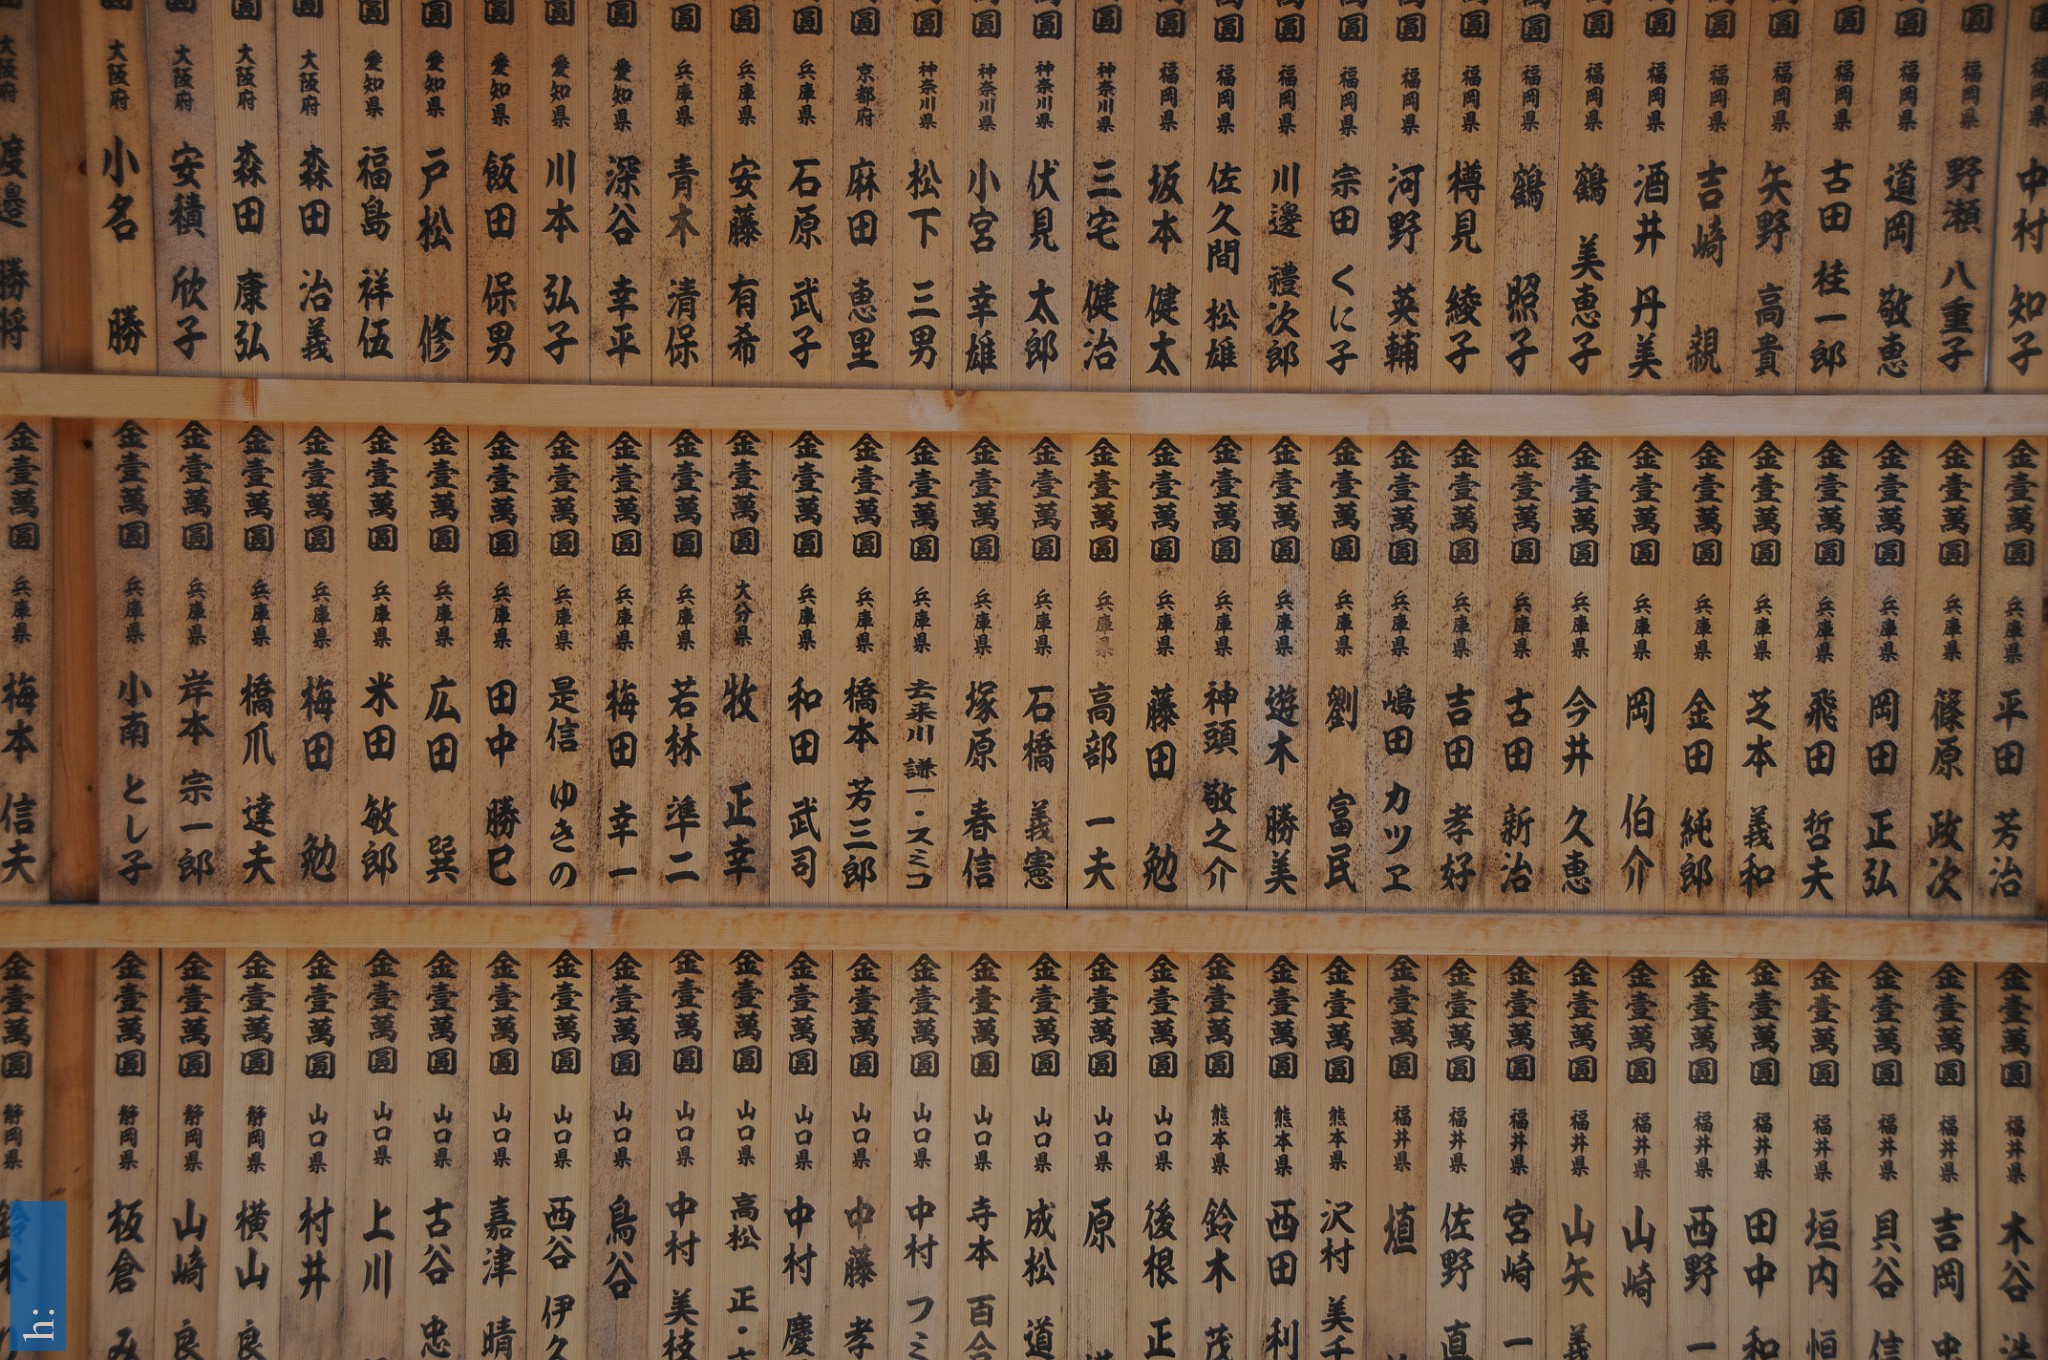 圓 福岡県 中村 知子
圓 福岡県 野瀬 八重子
圓 福岡県 道岡 敬恵
圓 福岡県 古田 桂一郎
圓 福岡県 矢野 高貴
圓 福岡県 吉崎 親
圓 福岡県 酒井 丹美
圓 福岡県 鶴 美恵子
圓 福岡県 鶴 照子
圓 福岡県 樽見 綾子
圓 福岡県 河野 英輔
圓 福岡県 宗田 くに子
圓 福岡県 川邊 禮次郎
圓 福岡県 佐久間 松雄
圓 福岡県 坂本 健太
圓 神奈川県 三宅 健治
圓 神奈川県 伏見 太郎
圓 神奈川県 小宮 幸雄
圓 神奈川県 松下 三男
圓 京都府 麻田 恵里
圓 兵庫県 石原 武子
圓 兵庫県 安藤 有希
圓 兵庫県 青木 清保
圓 愛知県 深谷 幸平
圓 愛知県 川本 弘子
圓 愛知県 飯田 保男
圓 愛知県 戸松 修
圓 愛知県 福島 祥伍
圓 大阪府 森田 治義
圓 大阪府 森田 康弘
圓 大阪府 安積 欣子
圓 大阪府 小名 勝
大阪府 渡邉 勝将
金壹萬圓 兵庫県 平田 芳治
金壹萬圓 兵庫県 篠原 政次
金壹萬圓 兵庫県 岡田 正弘
金壹萬圓 兵庫県 飛田 哲夫
金壹萬圓 兵庫県 芝本 義和
金壹萬圓 兵庫県 金田 純郎
金壹萬圓 兵庫県 岡 伯介
金壹萬圓 兵庫県 今井 久恵
金壹萬圓 兵庫県 古田 新治
金壹萬圓 兵庫県 吉田 孝好
金壹萬圓 兵庫県 嶋田 カツヱ
金壹萬圓 兵庫県 劉 富民
金壹萬圓 兵庫県 遊木 勝美
金壹萬圓 兵庫県 神頭 敬之介
金壹萬圓 兵庫県 藤田 勉
金壹萬圓 兵庫県 高部 一夫
金壹萬圓 兵庫県 石橋 義憲
金壹萬圓 兵庫県 塚原 春信
金壹萬圓 兵庫県 去来川 謙一・スミコ
金壹萬圓 兵庫県 橋本 芳三郎
金壹萬圓 兵庫県 和田 武司
金壹萬圓 大分県 牧 正幸
金壹萬圓 兵庫県 若林 準二
金壹萬圓 兵庫県 梅田 幸一
金壹萬圓 兵庫県 是信 ゆきの
金壹萬圓 兵庫県 田中 勝巳
金壹萬圓 兵庫県 広田 巽
金壹萬圓 兵庫県 米田 敏郎
金壹萬圓 兵庫県 梅田 勉
金壹萬圓 兵庫県 橋爪 達夫
金壹萬圓 兵庫県 岸本 宗一郎
金壹萬圓 兵庫県 小南 とし子
金壹萬圓 兵庫県 梅本 信夫
金壹萬圓 福井県 木谷
金壹萬圓 福井県 吉岡 忠
金壹萬圓 福井県 貝谷 信
金壹萬圓 福井県 垣内 恒
金壹萬圓 福井県 田中 和
金壹萬圓 福井県 西野 一
金壹萬圓 福井県 山崎
金壹萬圓 福井県 山矢 義
金壹萬圓 福井県 宮崎 一
金壹萬圓 福井県 佐野 直
金壹萬圓 福井県 填
金壹萬圓 熊本県 沢村 美千
金壹萬圓 熊本県 西田 利
金壹萬圓 熊本県 鈴木 茂
金壹萬圓 山口県 後根 正
金壹萬圓 山口県 原
金壹萬圓 山口県 成松 道
金壹萬圓 山口県 寺本 百合
金壹萬圓 山口県 中村 フミ
金壹萬圓 山口県 中藤 孝
金壹萬圓 山口県 中村 慶
金壹萬圓 山口県 高松 正・
金壹萬圓 山口県 中村 美枝
金壹萬圓 山口県 鳥谷
金壹萬圓 山口県 西谷 伊久
金壹萬圓 山口県 嘉津 晴
金壹萬圓 山口県 古谷 忠
金壹萬圓 山口県 上川
金壹萬圓 山口県 村井
金壹萬圓 静岡県 横山 良
金壹萬圓 静岡県 山崎 良
金壹萬圓 静岡県 板倉 み
金壹萬圓 静岡県 鈴木
h: